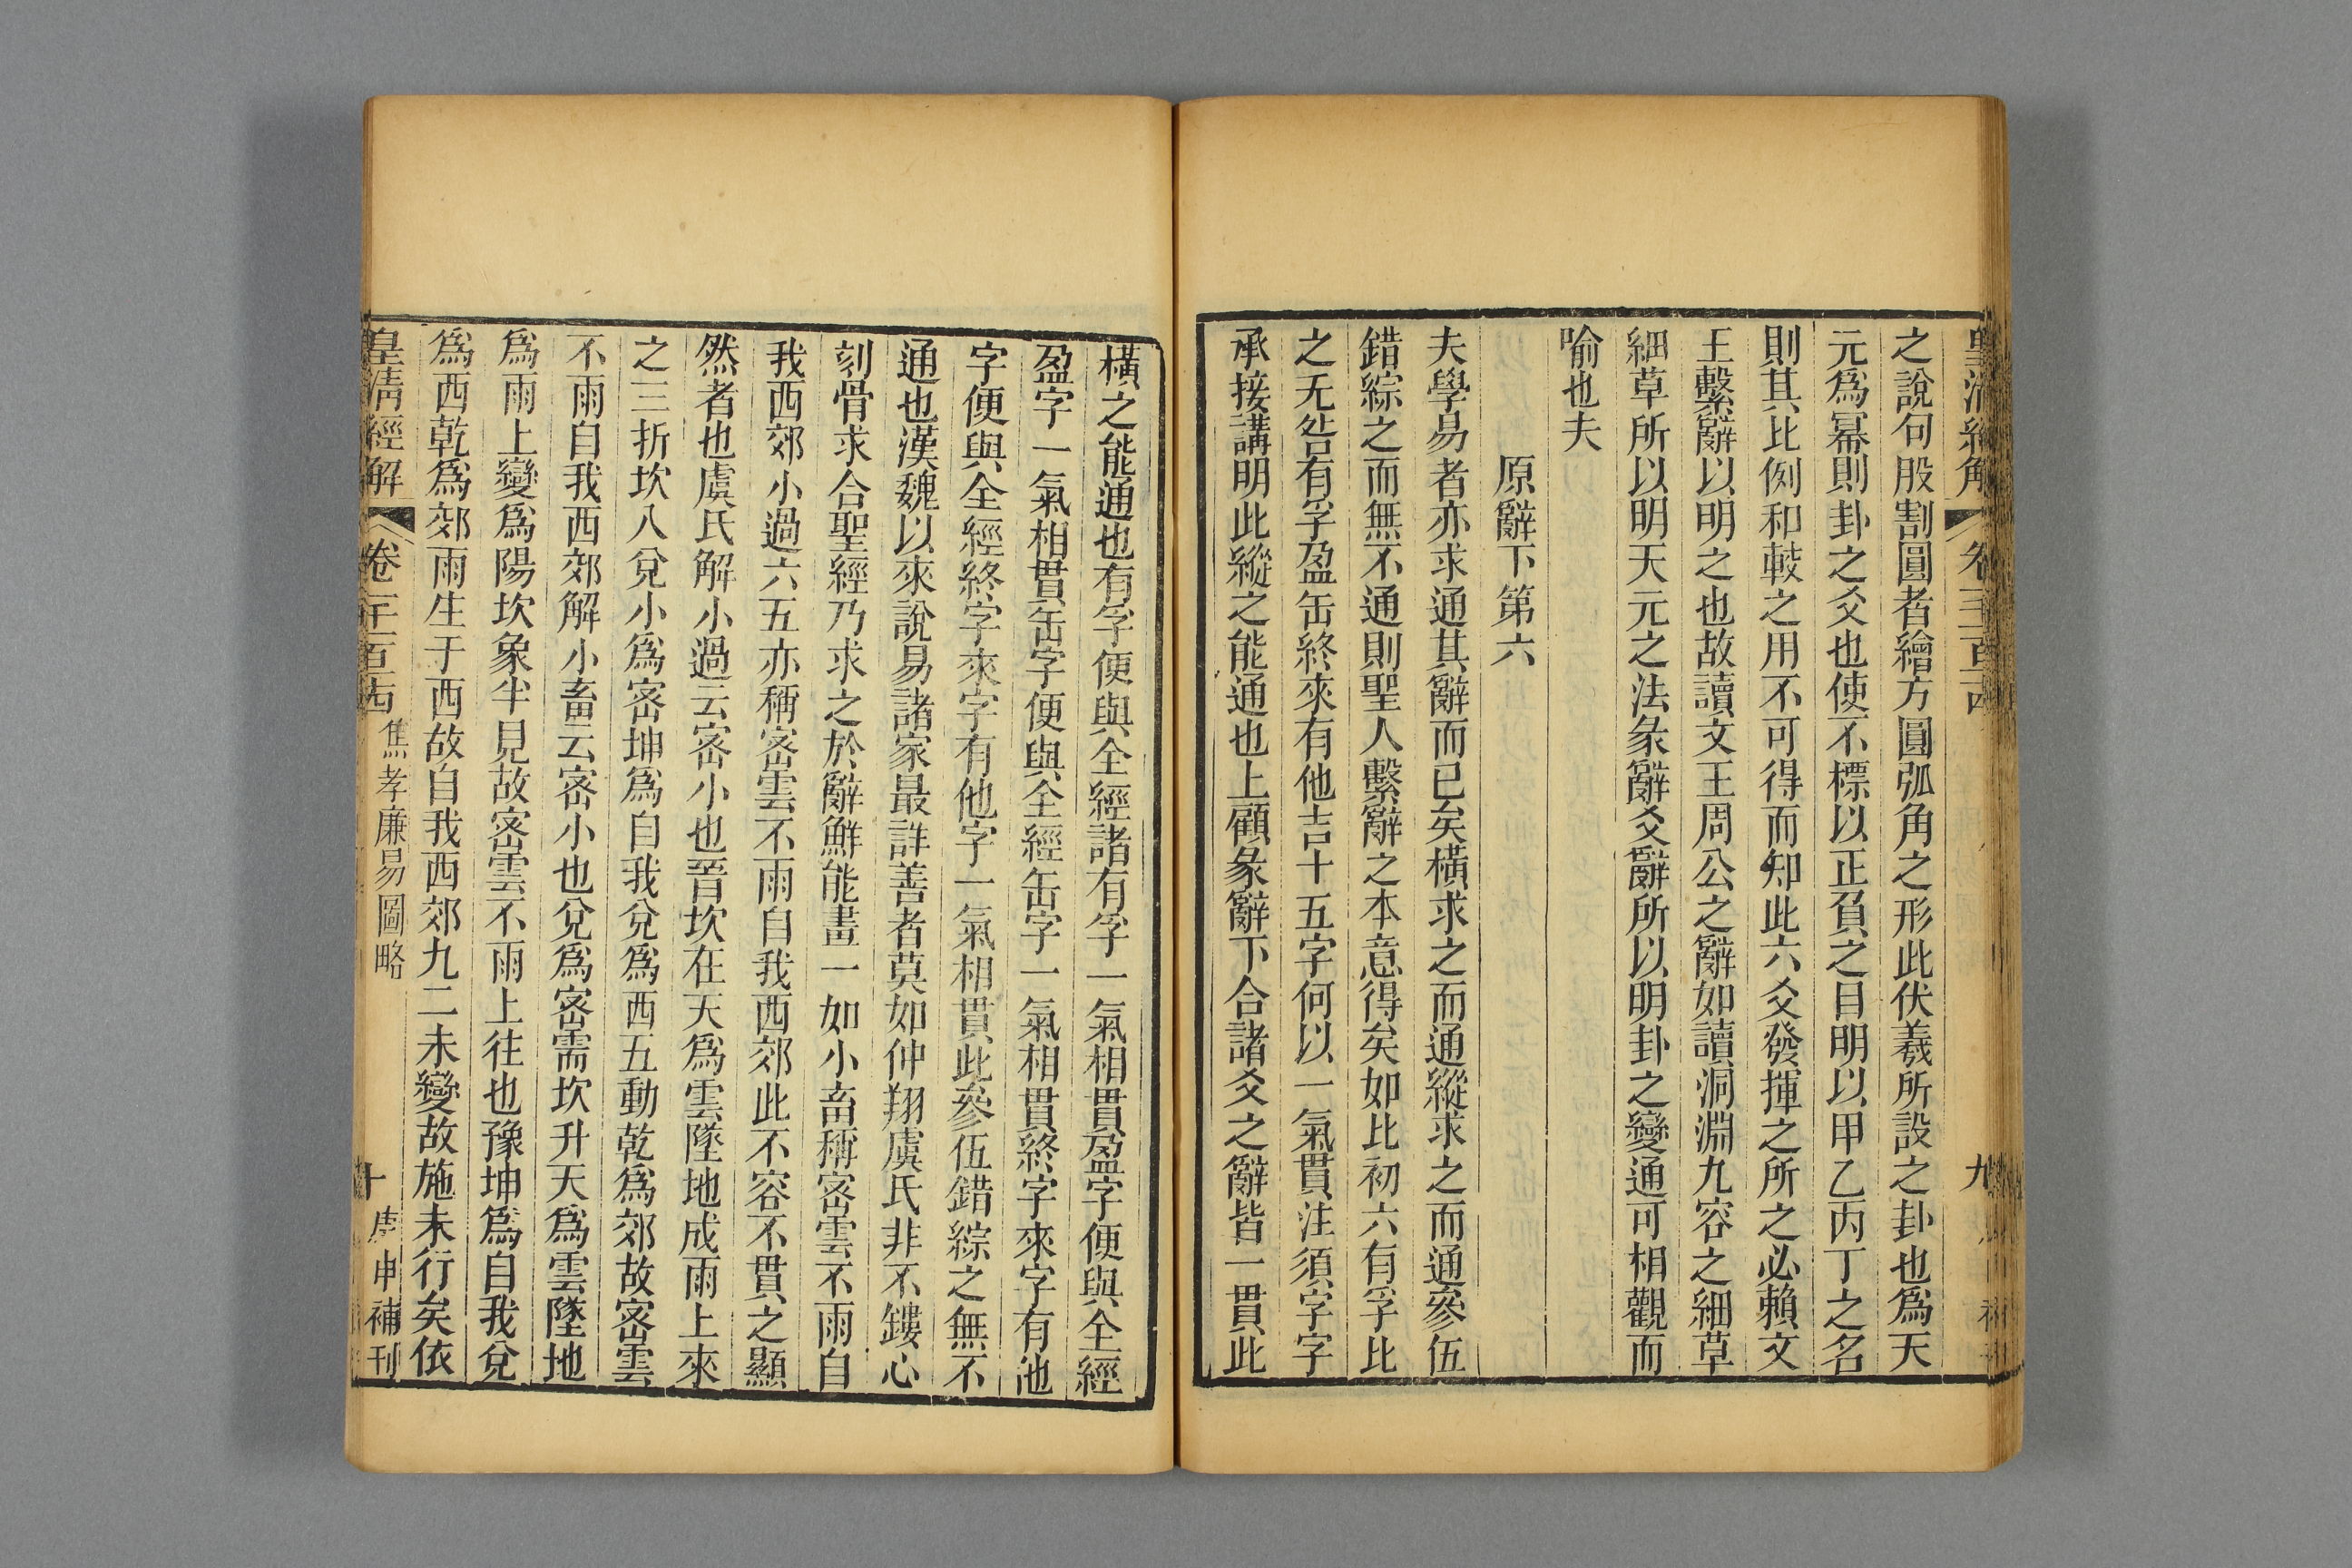 之說句股割圓者繪方圓弧角之形此伏羲所設之卦也爲天
元爲冪則卦之爻也使不標以正負之目明以甲乙丙丁之名
則其比例和較之用不可得而知此六爻發揮之所之必賴文
王繫辭以明之也故讀文王周公之辭如讀洞淵九容之細草
細草所以明天元之法彖辭爻辭所以明卦之變通可相觀而
喻也夫
原辭下第六
夫學易者亦求通其辭而已矣橫求之而通縱求之而通參伍
錯綜之而無不通則聖人繫辭之本意得矣如比初六有孚比
之无咎有孚盈缶終來有他吉十五字何以一氣貫注須字字
承接講明此縱之能通也上顧彖辭下合諸爻之辭皆一貫此
橫之能通也有孚便與全經諸有孚一氣相貫盈字便與全經
盈字一氣相貫缶字便與全經缶字一氣相貫終字來字有他
字便與全經終字來字有他字一氣相貫此參伍錯綜之無不
通也漢魏以來說易諸家最詳善者莫如仲翔虞氏非不鏤心
刻骨求合聖經乃求之於辭鮮能畫一如小畜稱密雲不雨自
我西郊小過六五亦稱密雲不雨自我西郊此不容不貫之顯
然者也虞氏解小過云密小也晉坎在天爲雲墜地成雨上來
之三折坎入兌小爲密坤爲自我兌爲西五動乾爲郊故密雲
不雨自我西郊解小畜云密小也兌爲密需坎升天爲雲墜地
爲雨上變爲陽坎象半見故密雲不雨上往也豫坤爲自我兌
爲西乾爲郊雨生于西故自我西郊九二未變故施未行矣依
皇清經解 卷一千一百十四 焦孝廉易圖略 十 庚申補刊